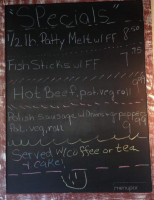 "Specials"
1/2 lb Patty Melt w/ FF 8.50
Fish Sticks w/ FF 7.75
Hot Beef, pot. veg. roll
Polish Sausage w/ Onions + peppers
Pot. veg. roll
Served w/ coffee or tea
+ cake!